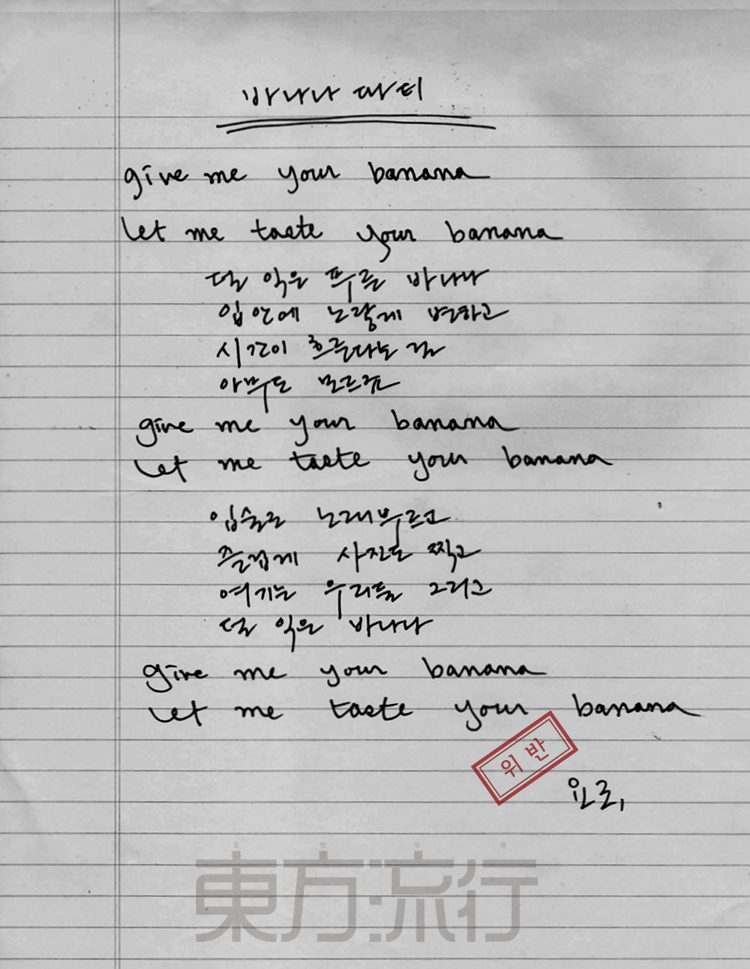 바나나 파티
give me your banana
let me taste your banana
덜 익은 푸른 바나나
입안에 노랗게 변하고
시간이 흐른다는 걸
아무도 모르죠
give me your banana
let me taste your banana
입술로 노래부르고
즐겁게 사진도 찍고
여기는 우리들 그리고
덜 익은 바나나
give me your banana
let me taste your banana
위반
요로,
東方流行